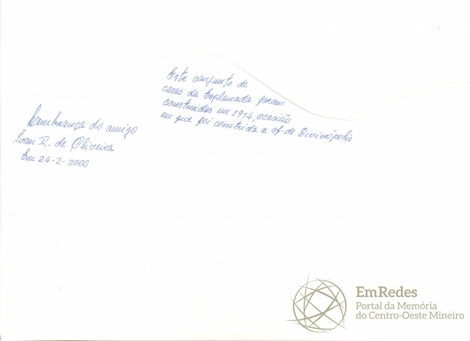 Este conjunto de
casas da Esplanada foram
construídas em 1914, ocasião
em que foi constrida a of de Divinópolis
Lembrança do amigo
Ivan R. de Oliveira
Em 24-2-2000
EmRedes
Portal da Memória
do Centro-Oeste Mineiro